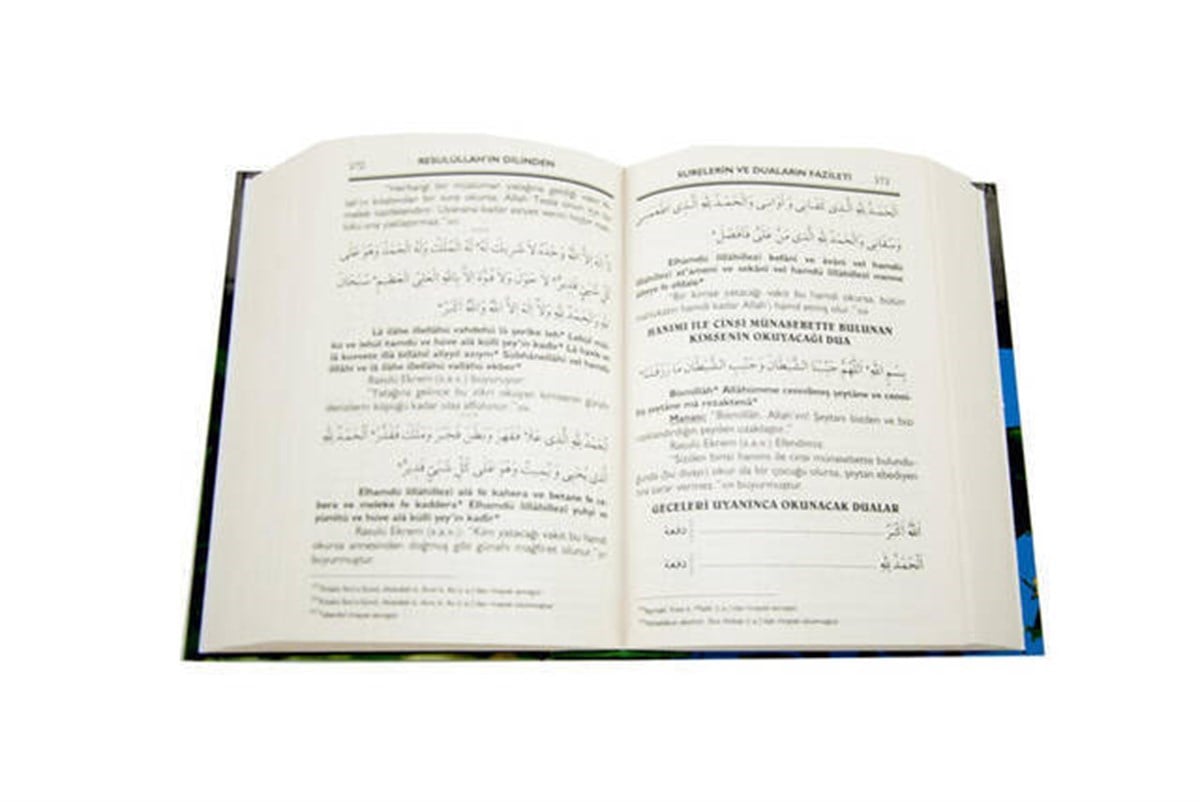 372 RESULÜLLAH'IN DİLİNDEN
"Herhangi bir müslüman yatağına geldiği vakit Al-
lah'ın kitabından bir sure okursa, Allah Teala onun için bir
melek vazifelendirir. Uyanana kadar eziyet verici hiçbir mah-
luku ona yaklaştırmaz."
لَا إِلَهَ إِلَّا اللَّهُ وَحْدَهُ لَا شَرِيكَ لَهُ لَهُ الْمُلْكُ وَلَهُ الْحَمْدُ وَهُوَ عَلَى
كُلِّ شَيْءٍ قَدِيرٌ * لَا حَوْلَ وَلَا قُوَّةَ إِلَّا بِاللَّهِ الْعَلِيِّ الْعَظِيمِ * سُبْحَانَ
اللَّهِ وَالْحَمْدُ لِلَّهِ وَلَا إِلَهَ إِلَّا اللَّهُ وَاللَّهُ أَكْبَرُ *
Lâ ilâhe illellâhü vahdehû lâ şerîke leh* Lehül mül-
kü ve lehül hamdü ve hüve alâ külli şey'in kadîr* Lâ havle ve
lâ kuvvete illâ billâhil aliyyil azıym* Sübhânellâhi vel hamdü
lillâhi ve lâ ilâhe illellâhü vallahü ekber*
Rasulü Ekrem (s.a.v.) buyuruyor:
"Yatağına gelince bu zikri okuyan kimsenin günahı
denizlerin köpüğü kadar olsa affolunur."
اَلْحَمْدُ لِلَّهِ الَّذِي عَلَا فَقَهَرَ وَبَطَنَ فَخَبَرَ وَمَلَكَ فَقَدَرَ * اَلْحَمْدُ لِلَّهِ
الَّذِي يُحْيِي وَيُمِيتُ وَهُوَ عَلَى كُلِّ شَيْءٍ قَدِيرٌ *
Elhamdü lillâhillezî alâ fe kahera ve betane fe ha-
bera ve meleke fe kaddera* Elhamdü lillâhillezî yuhyî ve
yümîtü ve hüve alâ külli şey'in kadîr*
Rasulü Ekrem (s.a.v.): "Kim yatacağı vakit bu hamdi
okursa annesinden doğmuş gibi günahı mağfiret olunur."
buyurmuştur.
SURELERİN VE DUALARIN FAZİLETİ 373
اَلْحَمْدُ لِلَّهِ الَّذِي كَفَانِي وَآوَانِي وَالْحَمْدُ لِلَّهِ الَّذِي أَطْعَمَنِي
وَسَقَانِي وَالْحَمْدُ لِلَّهِ الَّذِي مَنَّ عَلَيَّ فَأَفْضَلَ *
Elhamdü lillâhillezî kefânî ve âvânî vel hamdü
lillâhillezî at'amenî ve sekânî vel hamdü lillâhillezî menne
aleyye fe efdale*
"Bir kimse yatacağı vakit bu hamdi okursa, bütün
mahlukatın hamdi kadar Allah'ı hamd etmiş olur."
HANIMI İLE CİNSİ MÜNASEBETTE BULUNAN
KİMSENİN OKUYACAĞI DUA
بِسْمِ اللَّهِ * اَللَّهُمَّ جَنِّبْنَا الشَّيْطَانَ وَجَنِّبِ الشَّيْطَانَ مَا رَزَقْتَنَا *
Bismillâh* Allâhümme cennibneş şeytâne ve cenni-
biş şeytâne mâ rezaktenâ*
Manası: "Bismillâh, Allah'ım! Şeytanı bizden ve bizi
rızıklandırdığın şeyden uzaklaştır."
Rasulü Ekrem (s.a.v.) Efendimiz:
"Sizden birisi hanımı ile cinsi münasebette bulundu-
ğunda (bu duayı) okur da bir çocuğu olursa, şeytan ebediyen
ona zarar vermez." buyurmuştur.
GECELERİ UYANINCA OKUNACAK DUALAR
اَللَّهُ أَكْبَرُ دفعة
اَلْحَمْدُ لِلَّهِ دفعة